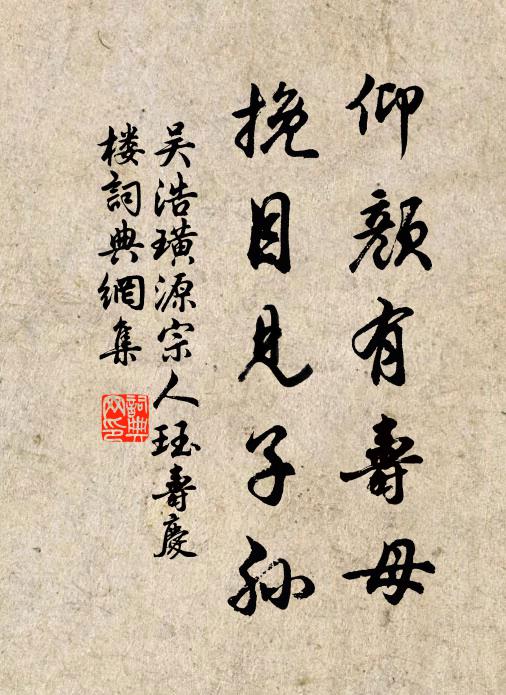 仰顏有壽母
挽目見子孫
吴浩璜源宗人珏壽慶
楼詞典網集
詞典網印